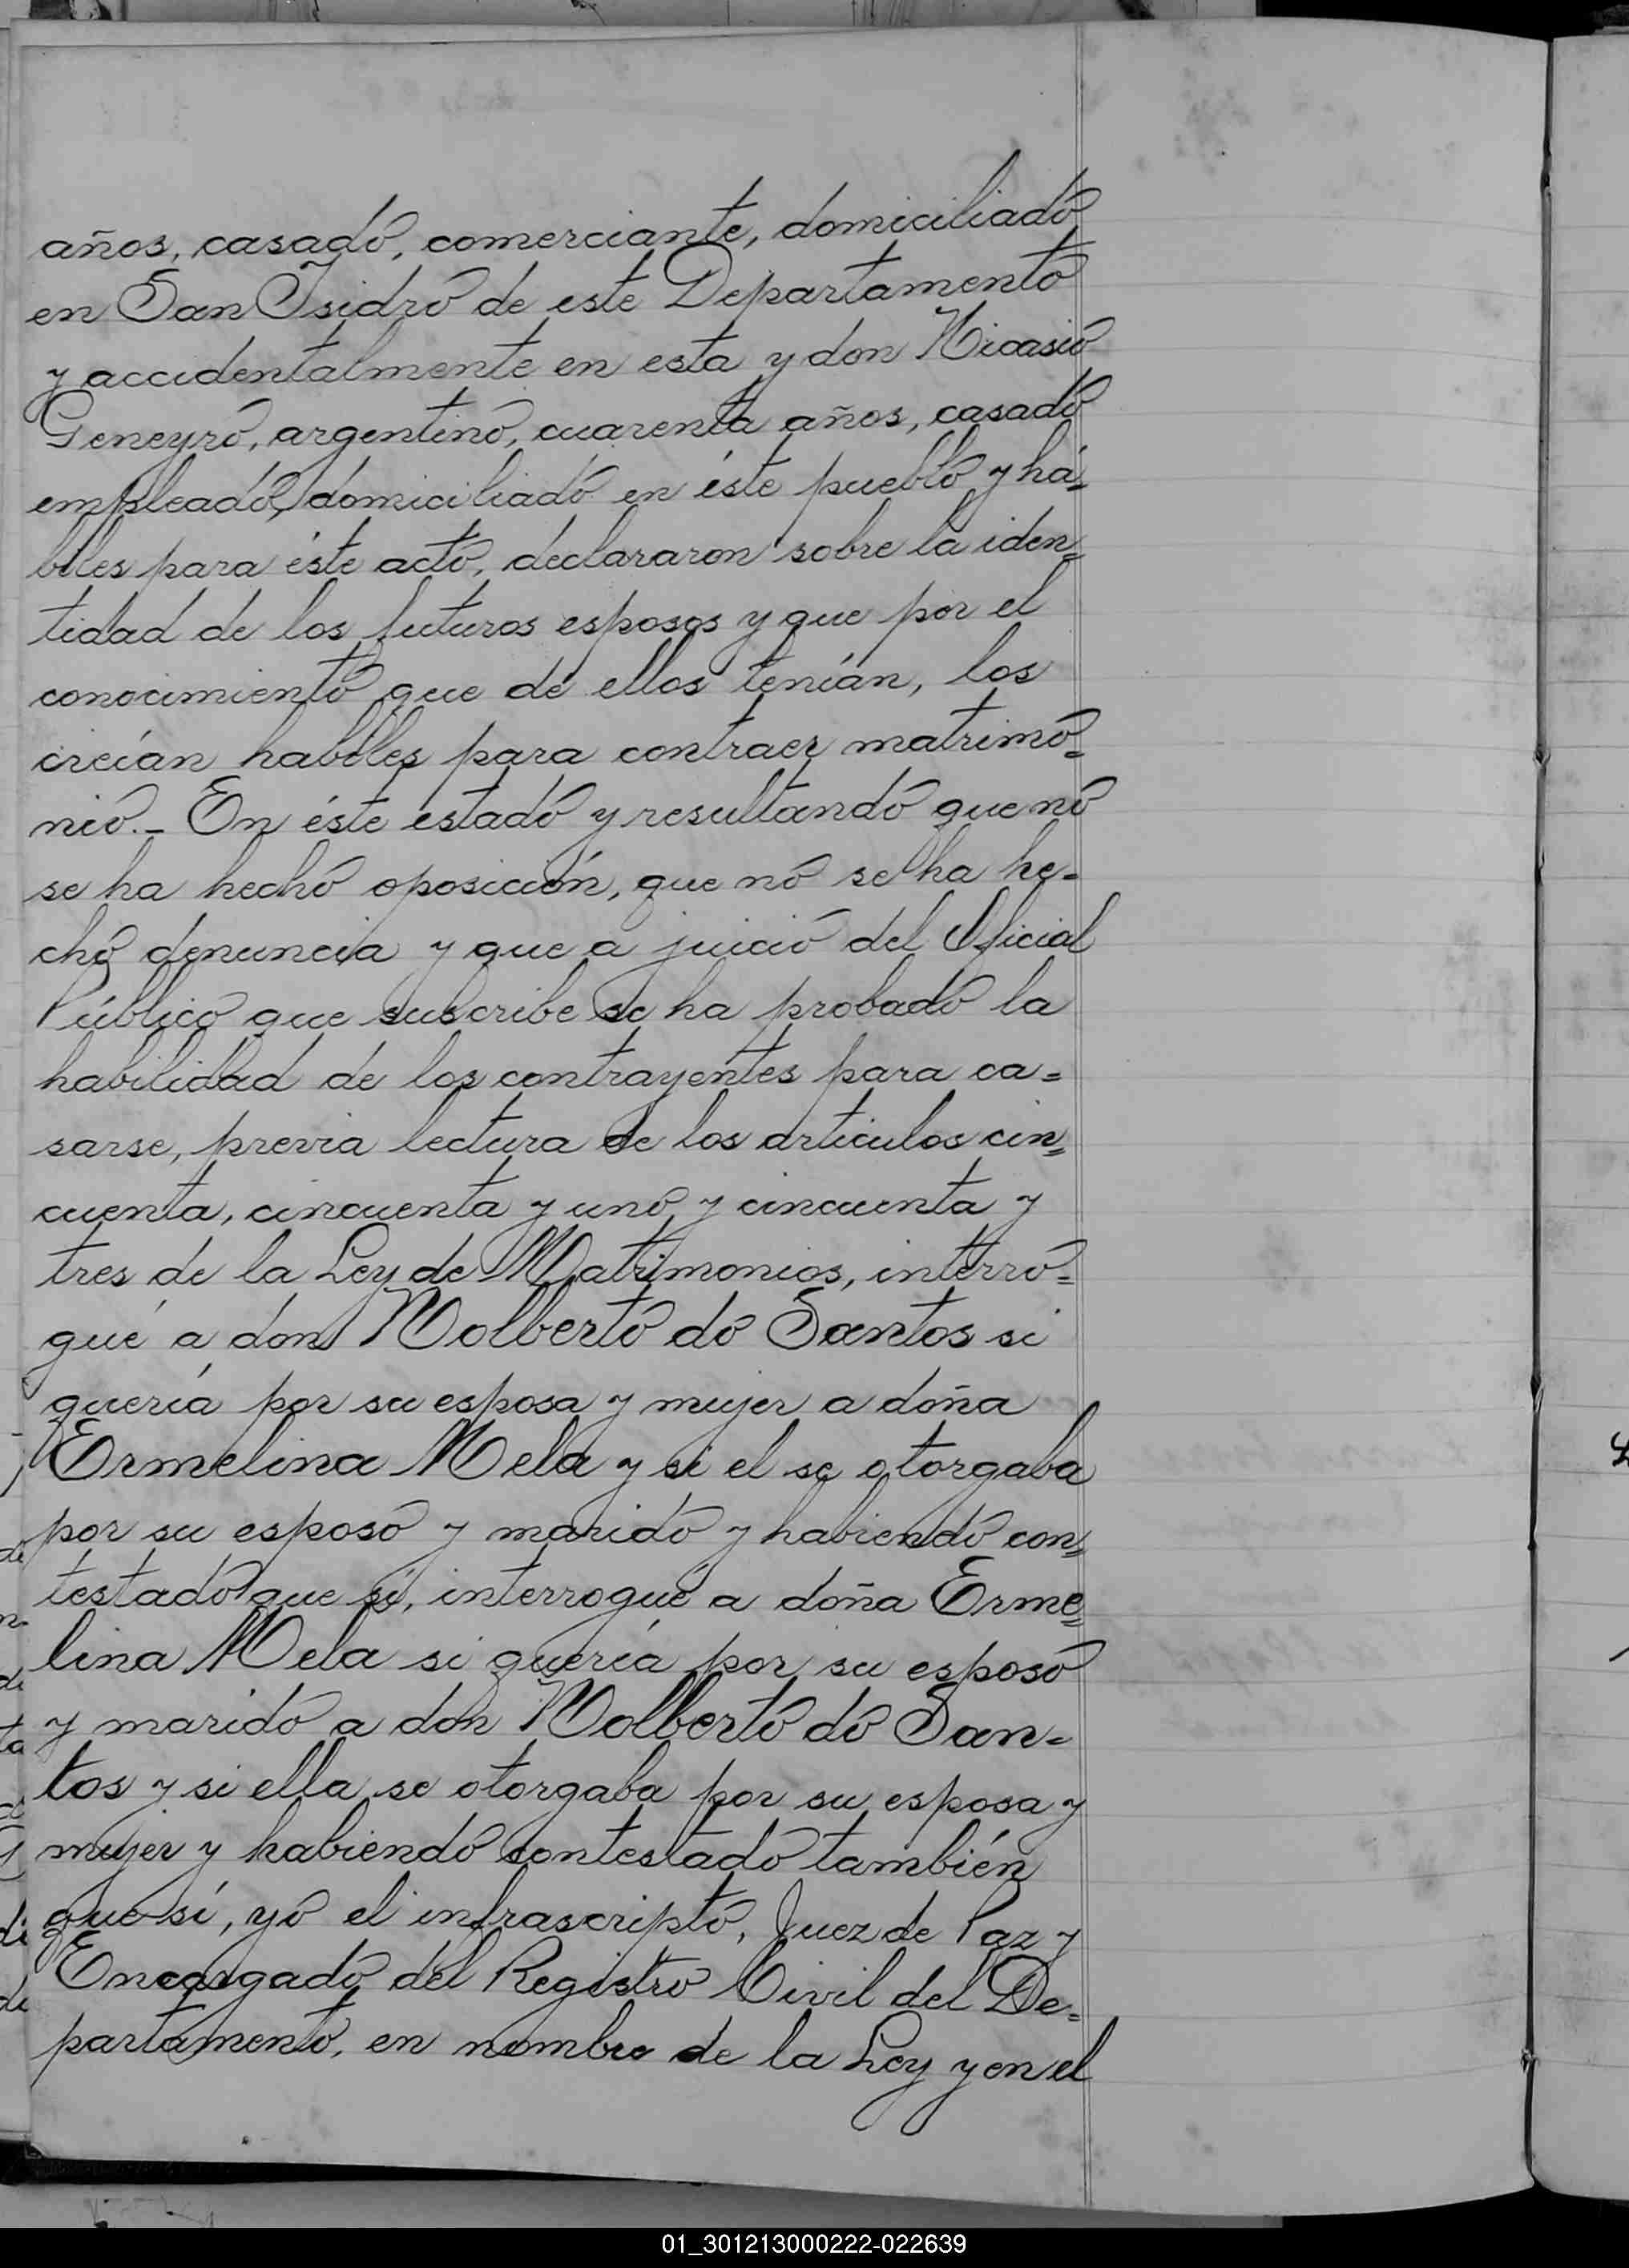 años, casado, comerciante, domiciliado
en San Isidro de este Departamento
y accidentalmente en esta y don Nicasio
Geneyro, argentino, cuarenta años, casado
empleado, domiciliado en éste pueblo y há=
biles para éste acto, declararon sobre la iden=
tidad de los futuros esposos y que por el
conocimiento que de ellos tenían, los
creían habiles para contraer matrimo=
nio.- En éste estado y resultando que no
se ha hecho oposición, que no se ha he=
cho denuncia y que a juicio del Oficial
Público que suscribe se ha probado la
habilidad de los contrayentes para ca=
sarse, previa lectura de los articulos cin=
cuenta, cincuenta y uno y cincuenta y
tres de la Ley de Matrimonios, interro=
gué a don Nolberto do Santos si
quería por su esposa y mujer a doña
Ermelina Mela y si el se otorgaba
por su esposo y marido y habiendo con=
testado que sí, interrogué a doña Erme=
lina Mela si quería por su esposo
y marido a don Nolberto do San=
tos y si ella se otorgaba por su esposa y
mujer y habiendo contestado también
que sí, yo el infrascripto, Juez de Paz y
Encargado del Registro Civil del De=
partamento, en nombre de la Ley y en el
01_301213000222-022639